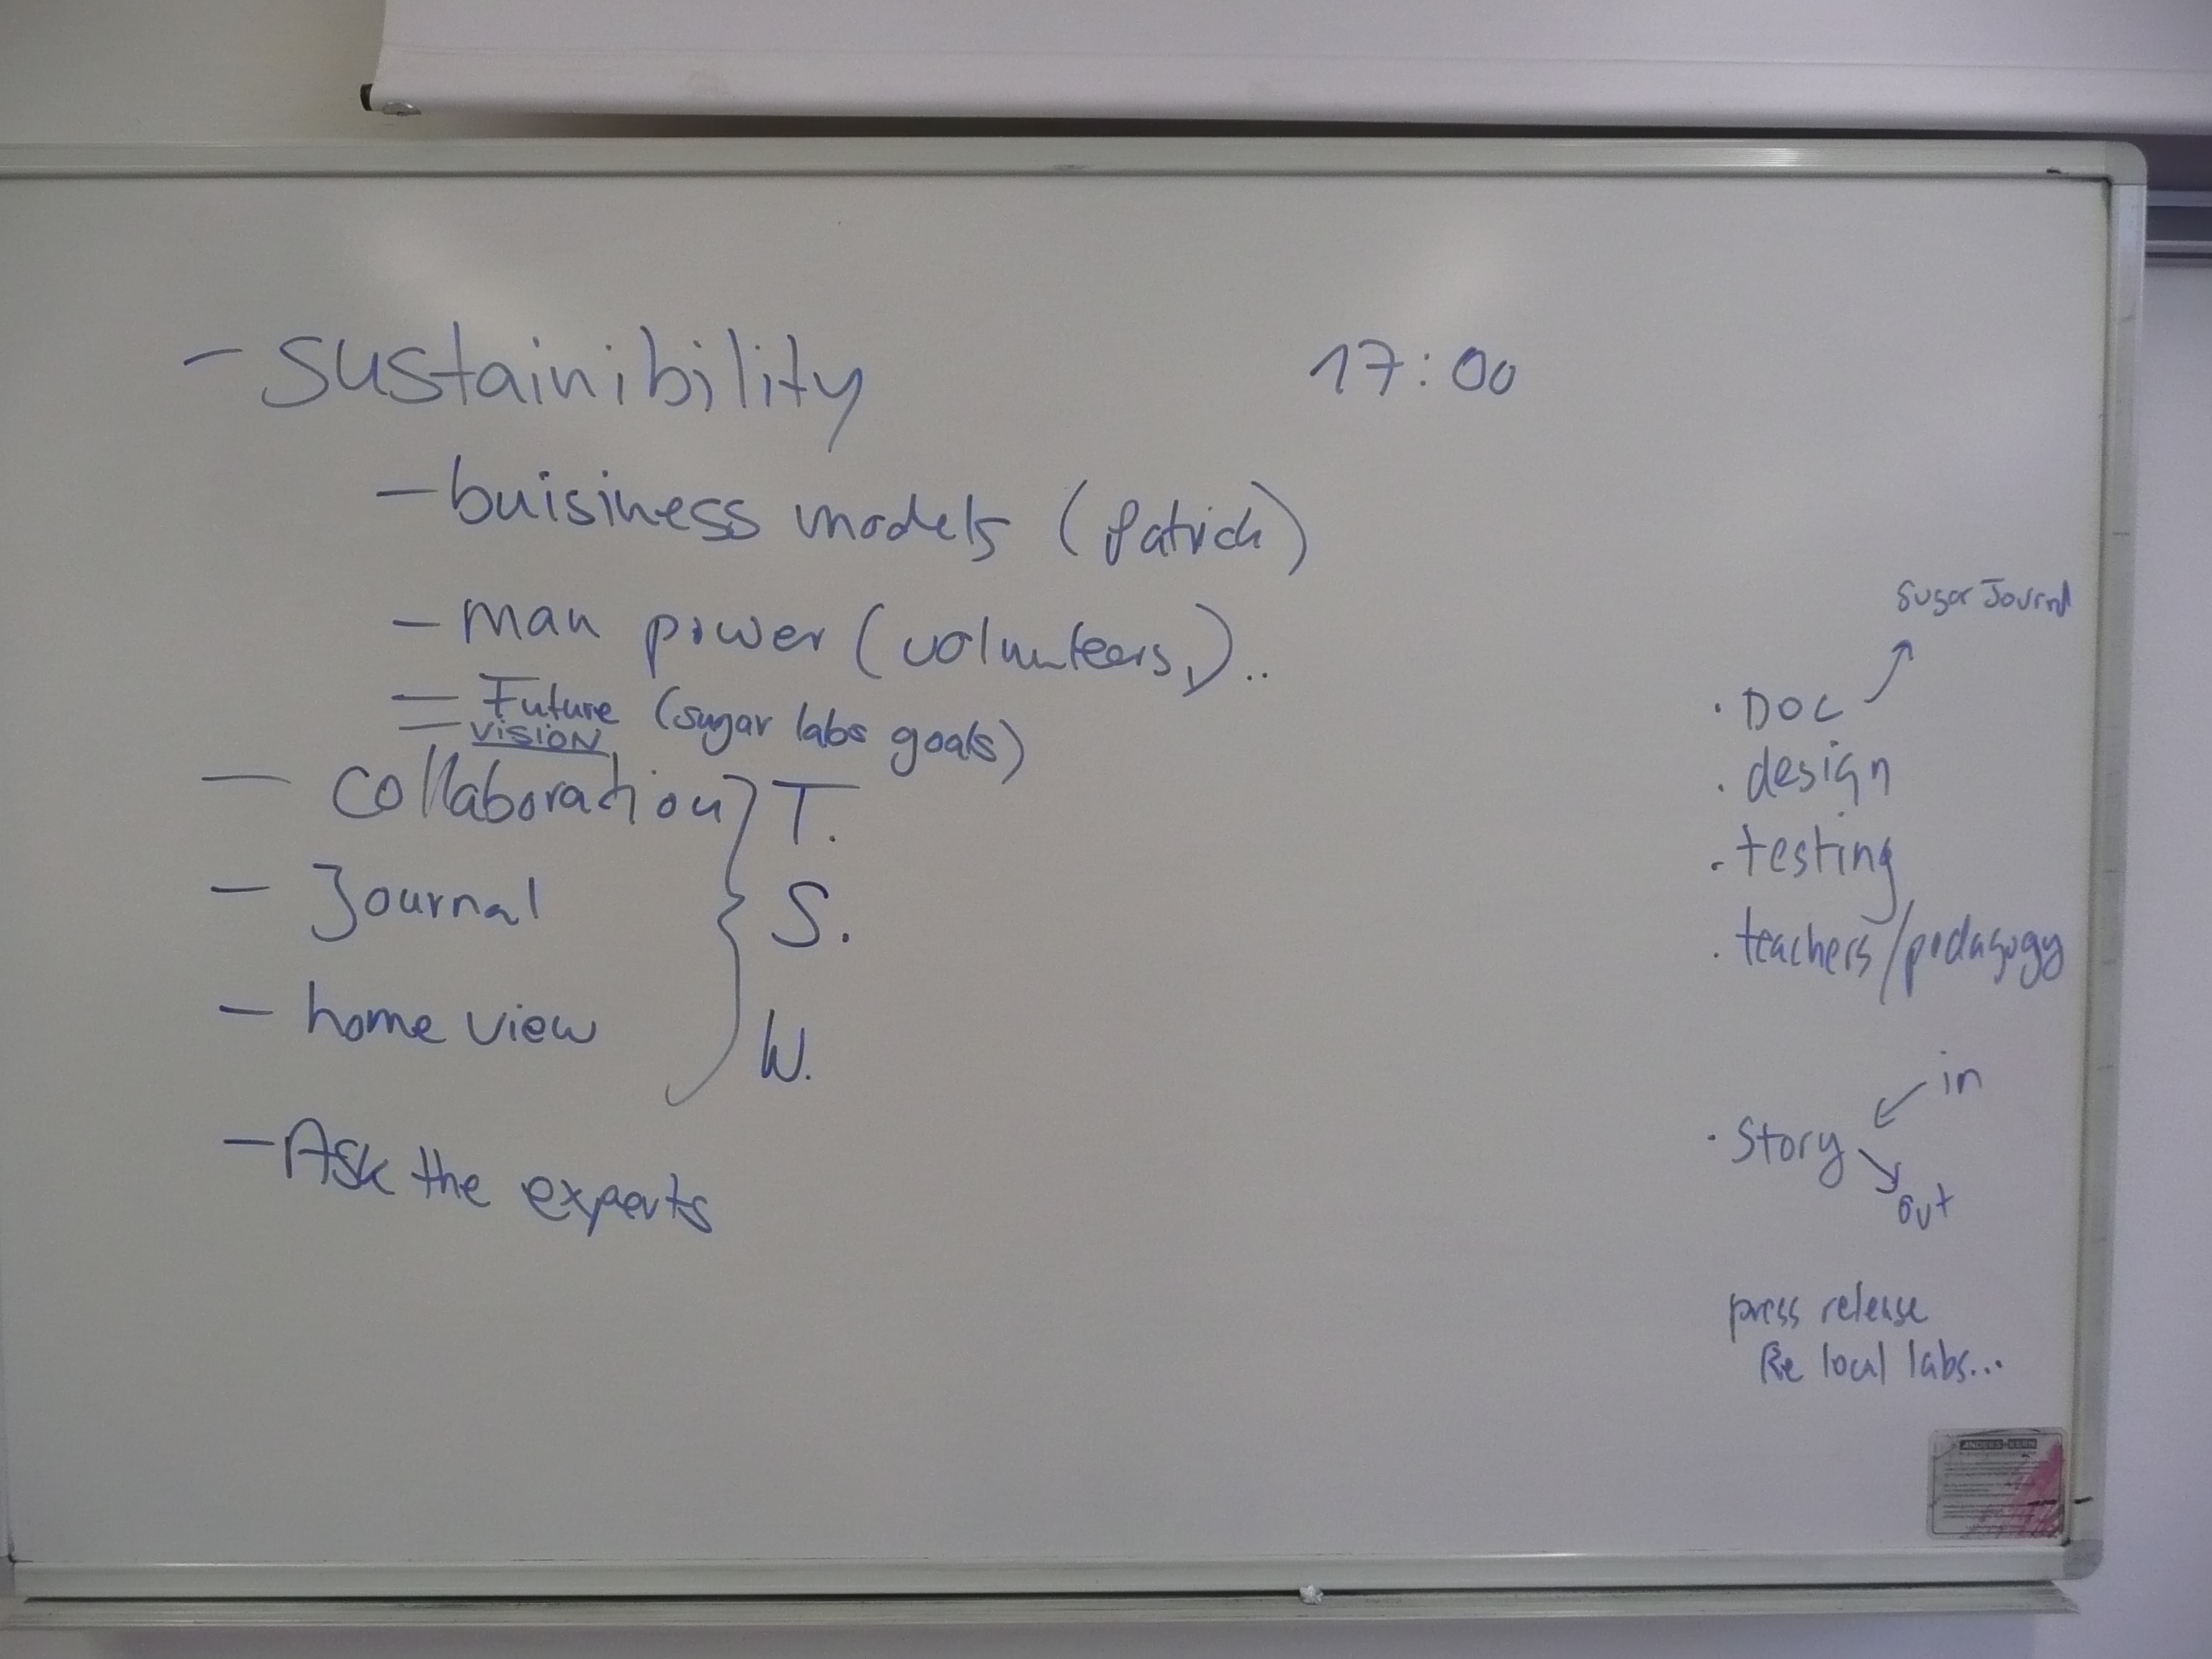 - Sustainibility 17:00
- buisiness models (Patrick)
- Man power (volunteers,)..
- Future (sugar labs goals)
- VISION
- Collaboration } T.
- Journal S.
- home view W.
- Ask the experts
Sugar Journal
· DOC
· design
· testing
· teachers/pedagogy
in
· Story
out
press release
Re local labs...
ANDERS+KERN